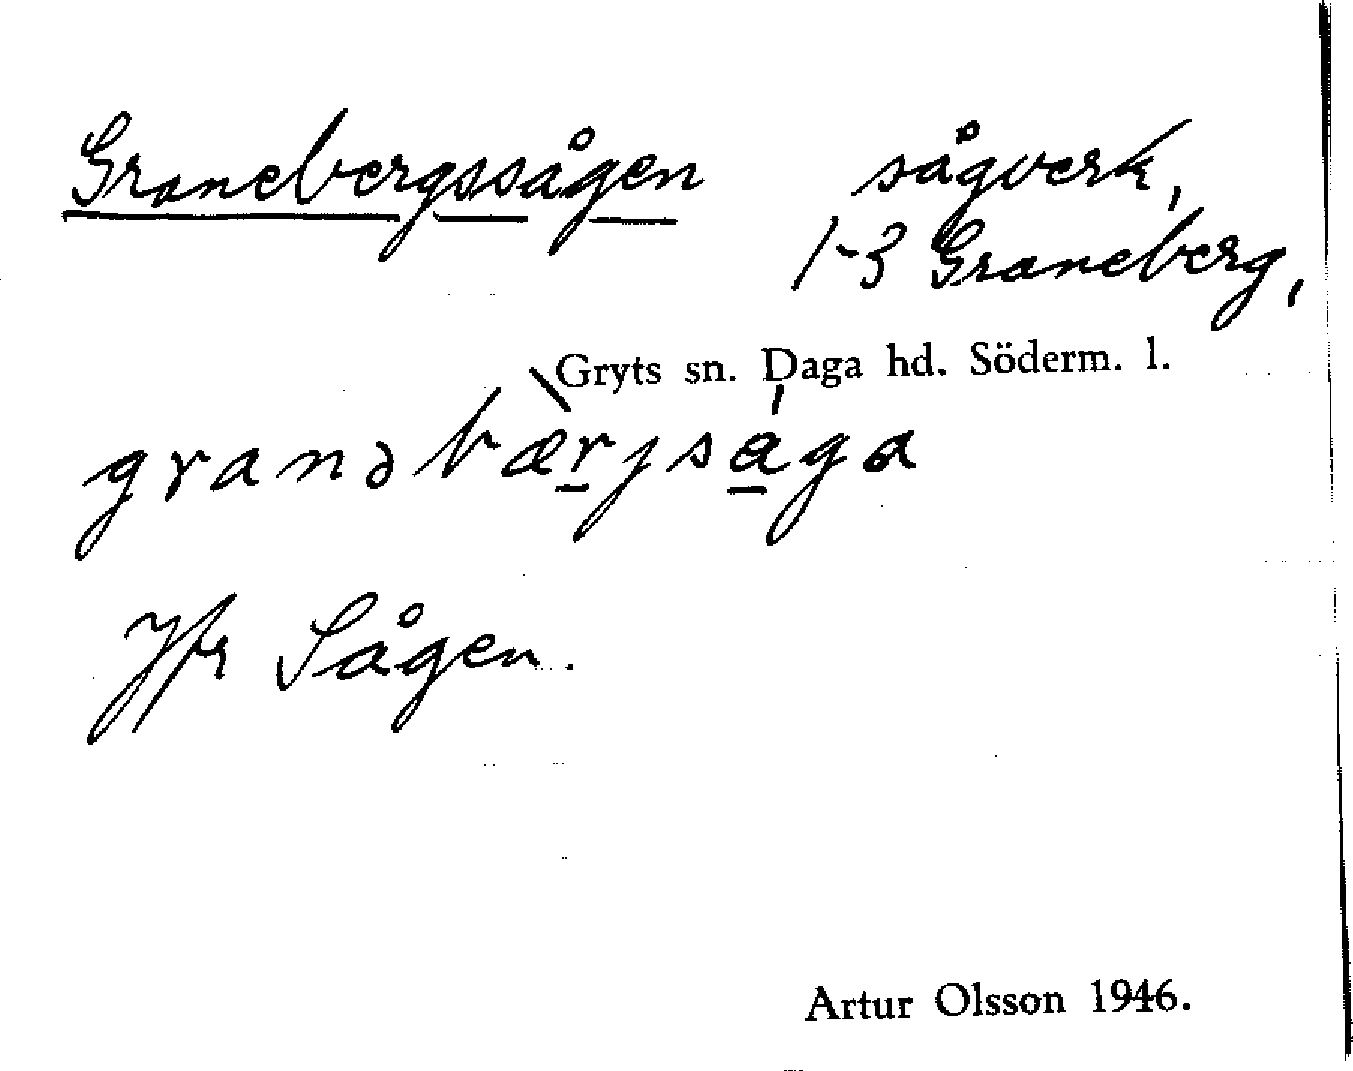 Granebergssågen sågverk,
1-3 Graneberg,
Gryts sn. Daga hd. Söderm. l.
granəbæ̀rjsága
Jfr Sågen.
Artur Olsson 1946.